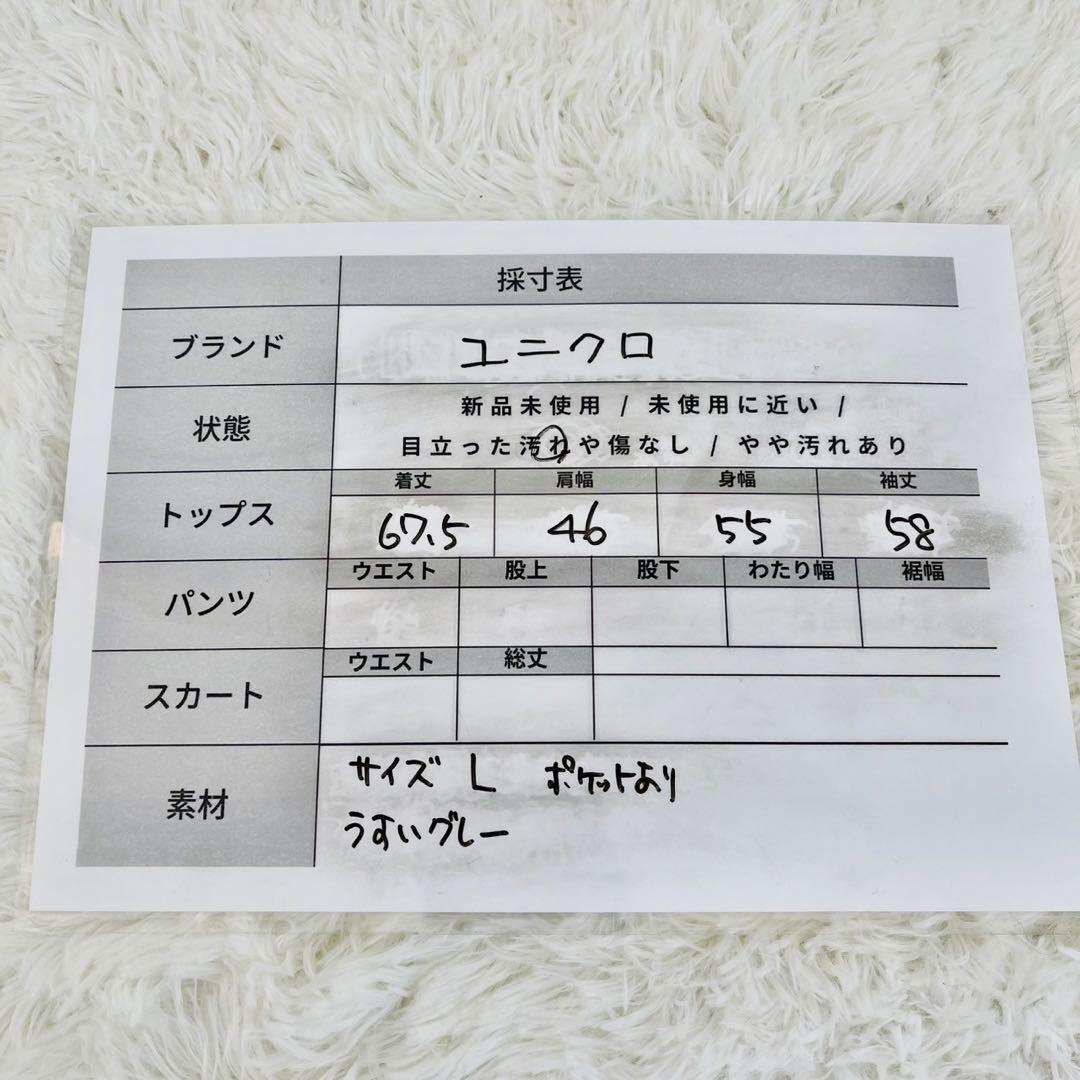 採寸表
ブランド ユニクロ
状態 新品未使用 / 未使用に近い /
目立った汚れや傷なし / やや汚れあり
トップス 着丈 肩幅 身幅 袖丈
67.5 46 55 58
パンツ ウエスト 股上 股下 わたり幅 裾幅
スカート ウエスト 総丈
素材 サイズ L ポケットあり
うすいグレー